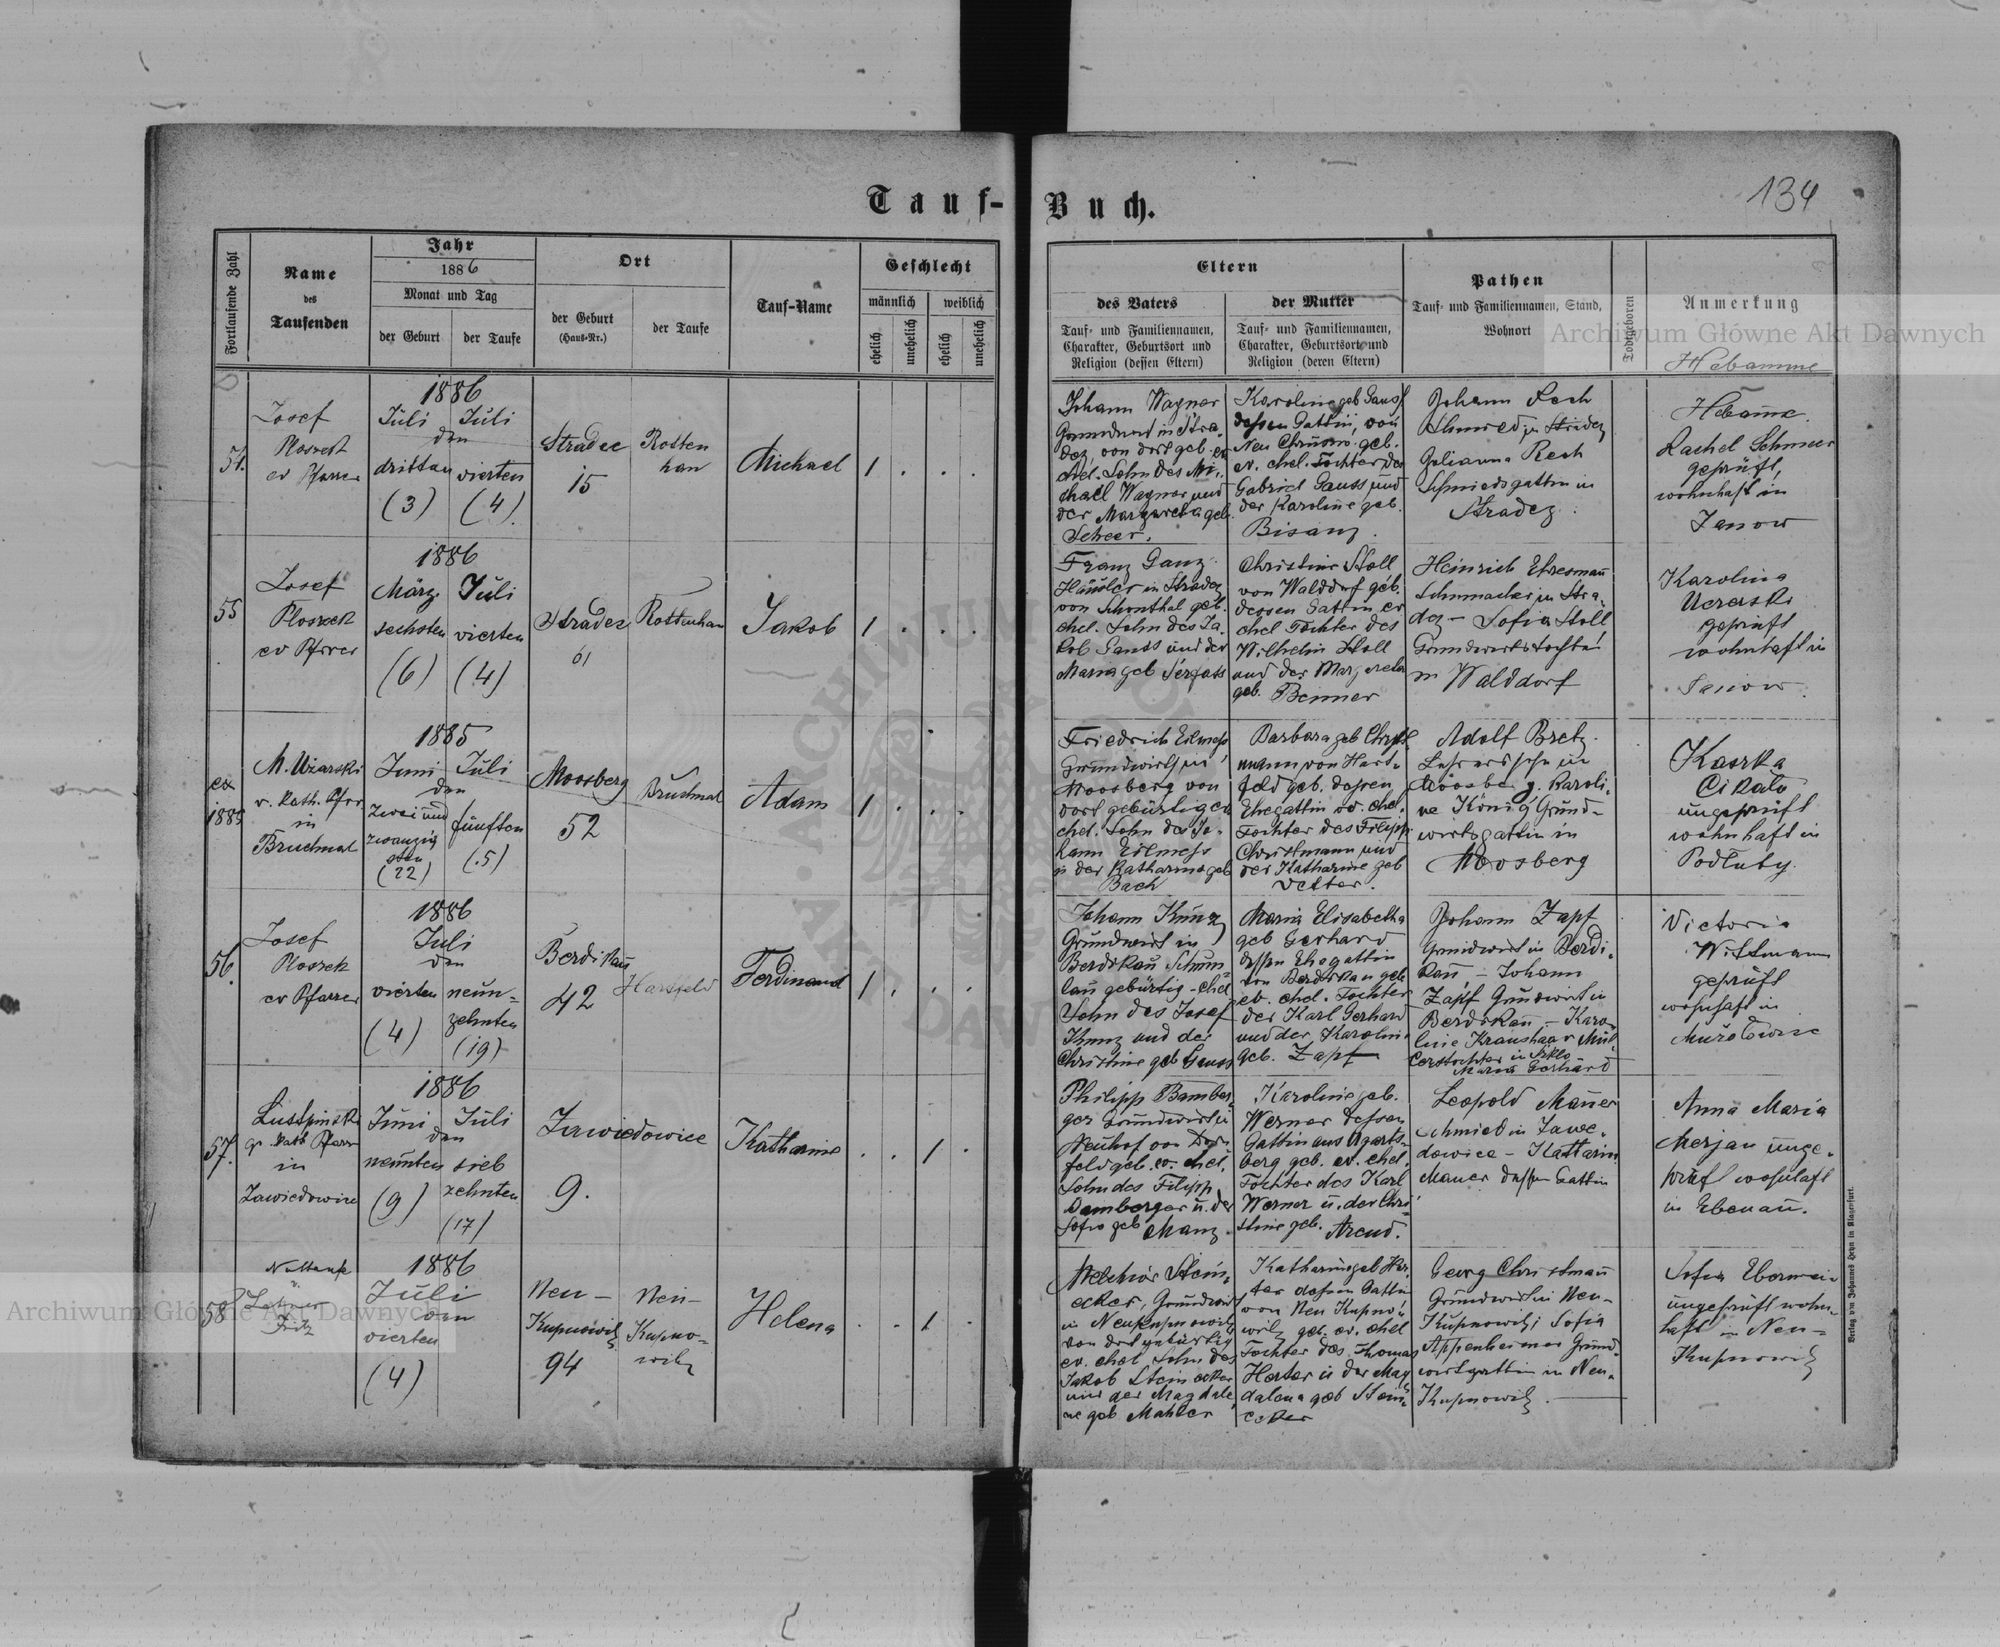 Tauf-Buch.
134
Fortlaufende Zahl
Name
des
Taufenden
Jahr
1886
Monat und Tag
der Geburt
der Taufe
Ort
der Geburt
(Haus-Nr.)
der Taufe
Tauf-Name
Geschlecht
männlich
weiblich
ehelich
unehelich
ehelich
unehelich
Eltern
des Vaters
Tauf- und Familiennamen,
Charakter, Geburtsort und
Religion (dessen Eltern)
der Mutter
Tauf- und Familiennamen,
Charakter, Geburtsort und
Religion (deren Eltern)
Pathen
Tauf- und Familiennamen, Stand,
Wohnort
Todtgeboren
Anmerkung
Hebamme
54.
Josef
Ploszek
ev Pfarrer
1886
Juli Juli
den
dritten vierten
(3) (4)
Stradec
15
Rotten
han
Michael
1 . . .
Johann Wagner
Grundwirt in Stra-
dez, von dort geb. ev
ehel. Sohn des Mi-
chael Wagner und
der Margareta geb.
Scheer.
Karoline geb Gauss
dessen Gattin, von
Neu Chrusno geb.
ev. ehel. Tochter des
Gabriel Gauss und
der Karoline geb.
Bisanz.
Johann Rech
Schmied in Stradez
Julianna Rech
Schmiedsgattin in
Stradez.
Hebamme
Rachel Schmeer
geprüft,
wohnhaft in
Janow
55
Josef
Ploszek
ev Pfarrer
1886
März Juli
sechsten vierten
(6) (4)
Stradez
61
Rottenhan
Jakob
1 . . .
Franz Ganz
Häusler in Stradez
von Schönthal geb.
ehel. Sohn des Ja-
kob Gauss und der
Maria geb
Christine Stoll
von Walddorf geb.
dessen Gattin ev
ehel Tochter des
Wilhelm Stoll
und der Margareta
geb. Benner
Heinrich Ehresmann
Schumacher in Stra-
dez - Sofia Stoll
Grundwirtstochter
in Walddorf
Karolina
geprüft
wohnhaft in
Janow.
ex
1885
M. Uziarski
r. kath. Pfrr
in
Bruchnal
1885
Juni Juli
den
zwei und fünften
zwanzig
sten
(22) (5)
Moosberg
52
Bruchnal
Adam
1 . . .
Friedrich Eilmess
Grundwirth in
Moosberg von
dort gebürtig ev
ehel. Sohn des Jo-
hann Eilmess
u der Katharina geb
Bach
Barbara geb Christ
mann von Hart-
feld geb. dessen
Ehegattin ev. ehel.
Tochter des Filipp
Christmann und
der Katharine geb
Vetter.
Adolf Bretz
Lehrerssohn in
Moosberg, Karoli-
ne König Grund-
wirtsgattin in
Moosberg
Kaska
Cikalo
ungeprüft
wohnhaft in
Podluby.
56.
Josef
Ploszek
ev Pfarrer
1886
Juli
den
vierten neun-
zehnten
(4) (19)
Berdikau
42
Hartfeld
Ferdinand
1 . . .
Johann Kunz
Grundwirt in
Berdikau Schum-
lau gebürtig - ehel
Sohn des Josef
Kunz und der
Christine geb Gauss
Maria Elisabetha
geb Gerhard
dessen Ehegattin
von Berdikau geb.
ev. ehel. Tochter
der Karl Gerhard
und der Karoline
geb. Zapf
Johann Zapf
Grundwirt in Berdi-
kau - Johann
Zapf Grundwirt in
Berdikau - Karo-
line Kraushaar Mül-
lerstochter in Szklo
Maria Gerhard
Victoria
Wittmann
geprüft
wohnhaft in
57.
gr. kath Pfarr
in
Zawiedowice
1886
Juni Juli
den
neunten sieb
zehnten
(9) (17)
Zawiedowice
9.
Katharine
. . 1 .
Philipp Bamber-
ger Grundwirt in
Neuhof von Dorn
feld geb. ev. ehel.
Sohn des Filipp
Bamberger u. der
Sofie geb Manz.
Karoline geb.
Werner dessen
Gattin aus Ugarts-
berg geb. ev. ehel.
Tochter des Karl
Werner u. der Chri-
stine geb. Arend.
Leopold Mauer
Schmied in Zawe-
dowice - Kattarin
Mauer dessen Gattin
Anna Maria
Merjan unge-
prüft wohnhaft
in Ebenau.
58
Nottaufe
v.
Johann
Fritz
1886
Juli
den
vierten
(4)
Neu-
Kupnowitz
94
Neu-
Kupno-
witz
Helena
. . 1 .
Melchior Stein-
ecker, Grundwirt
in Neukupnowitz
von dort gebürtig
ev. ehel Sohn des
Jakob Steinecker
und der Magdale-
ne geb Mahler
Katharine geb Her-
ter dessen Gattin
von Neu Kupno-
witz geb. ev. ehel
Tochter des Thomas
Herter u der Mag
dalena geb Stein-
ecker
Georg Christmann
Grundwirt in Neu-
Kupnowitz; Sofia
Appenheimer Grund-
wirtsgattin in Neu-
Kupnowitz.
Sofia Ebermein
ungeprüft wohn-
haft in Neu-
Kupnowitz
Verlag von Johannes Heyn in Klagenfurt.
Archiwum Główne Akt Dawnych
Archiwum Główne Akt Dawnych